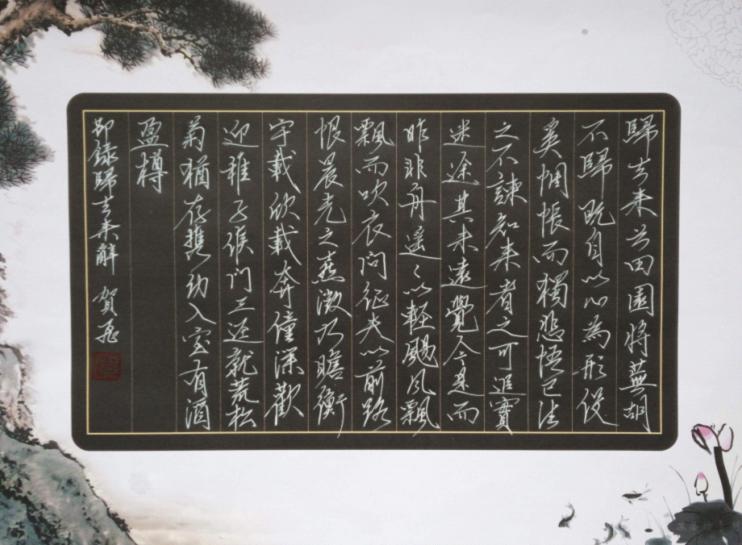 歸去来兮田園將蕪胡
不歸既自以心為形役
奚惆悵而獨悲悟已往
之不諫知来者之可追實
迷途其未遠覺今是而
昨非舟遥々以輕颺風飄
飄而吹衣问征夫以前路
恨晨光之熹微乃瞻衡
宇載欣載奔僮僕歡
迎稚子候门三迳就荒松
菊猶存携幼入室有酒
盈樽
節録歸去来辭 賀